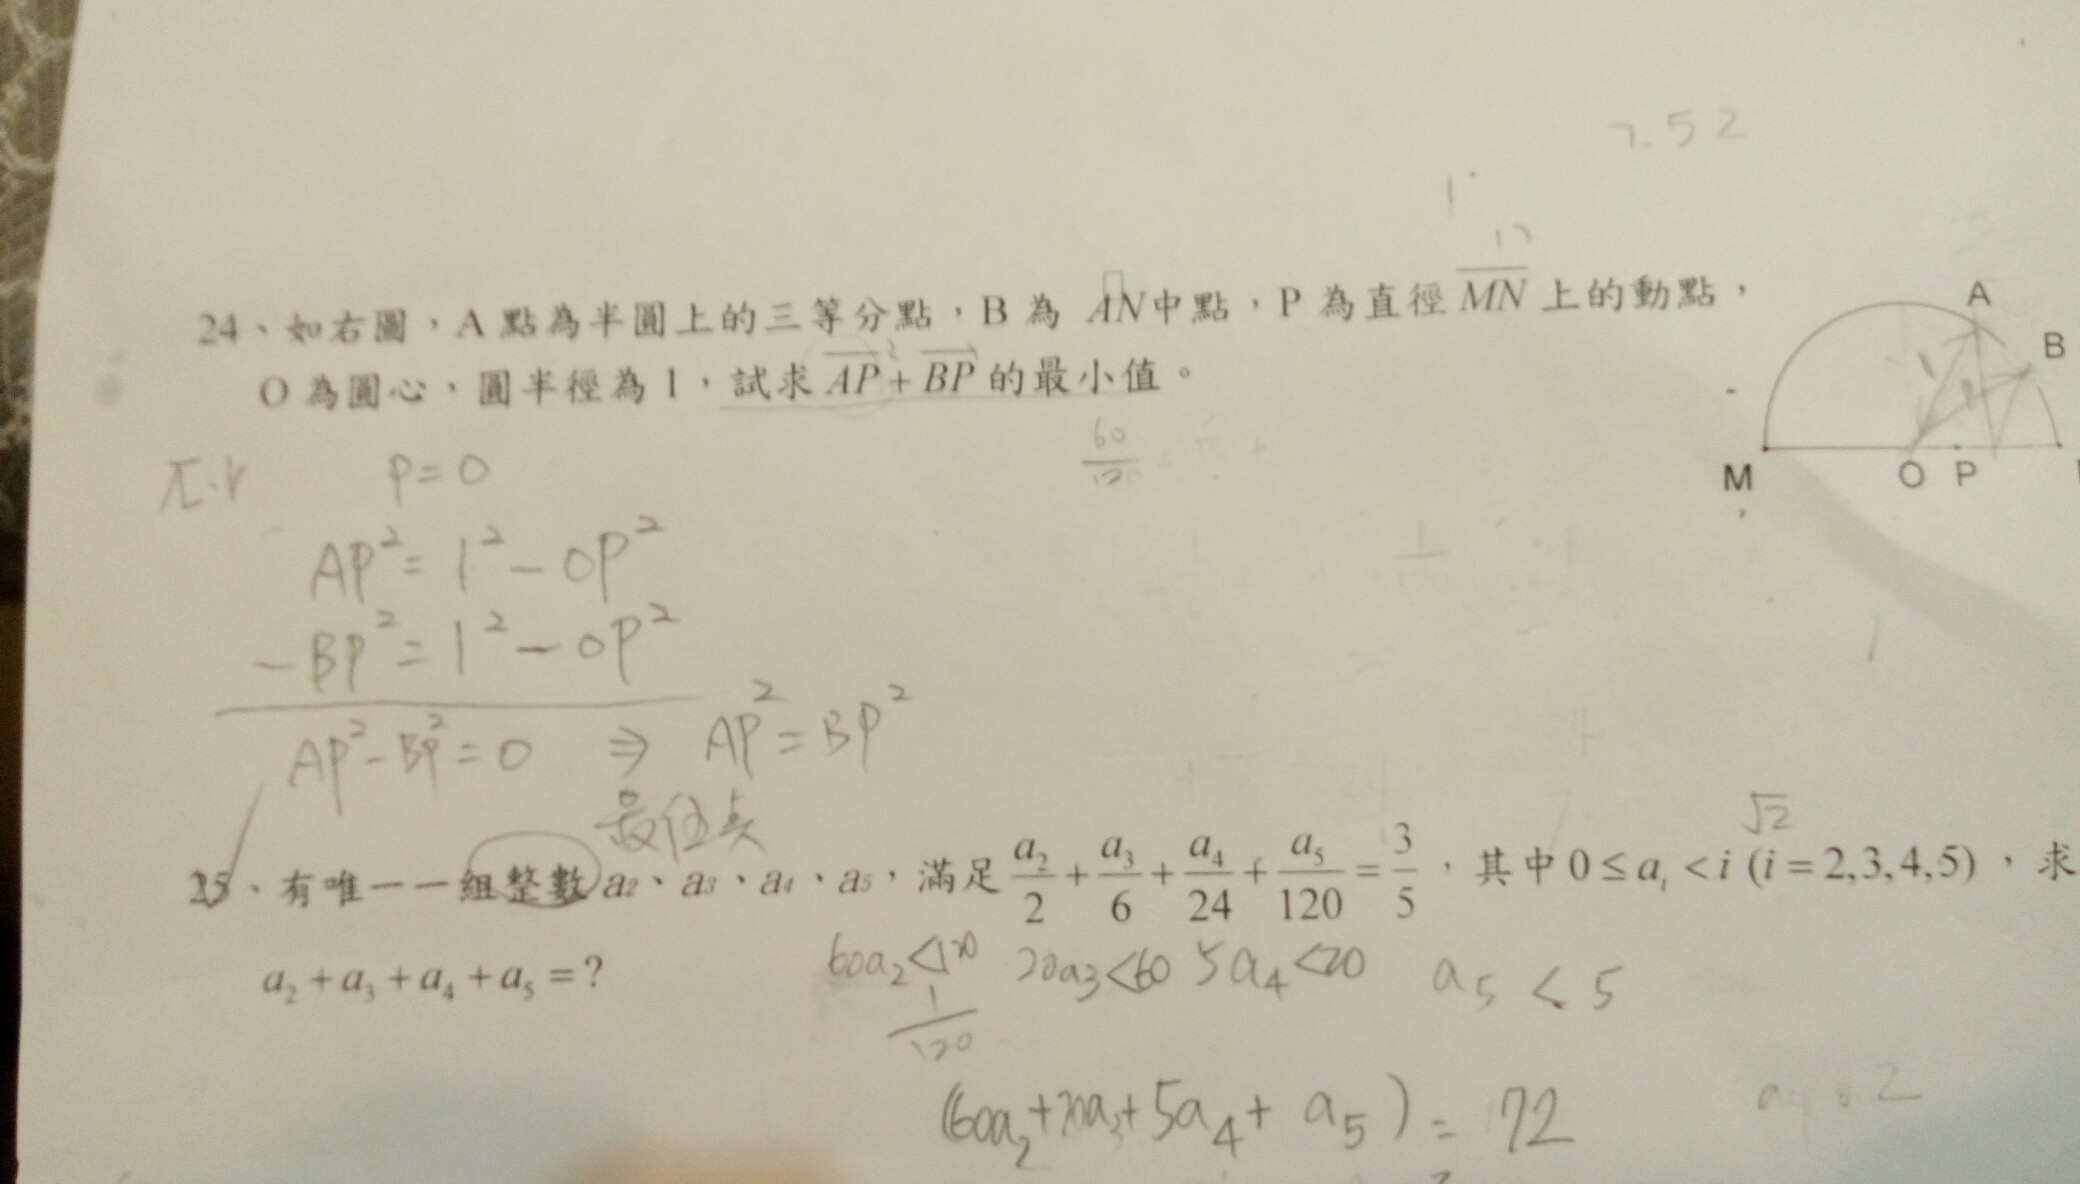 7.52
24、如右圖，A 點為半圓上的三等分點，B 為 AN中點，P 為直徑 MN 上的動點，
O 為圓心，圓半徑為 1，試求 AP + BP 的最小值。
A
B
M
O P
60
P=0
AP²=1²-OP²
-BP²=1²-OP²
AP²-BP²=0 ⇒ AP²=BP²
√2
25、有唯一一組整數 a₂、a₃、a₄、a₅，滿足 a₂/2 + a₃/6 + a₄/24 + a₅/120 = 3/5，其中 0 ≤ aᵢ < i (i = 2,3,4,5)，求
a₂ + a₃ + a₄ + a₅ = ?
60a₂<120 20a₃<60 5a₄<20 a₅<5
1/120
(60a₂+20a₃+5a₄+a₅)=72